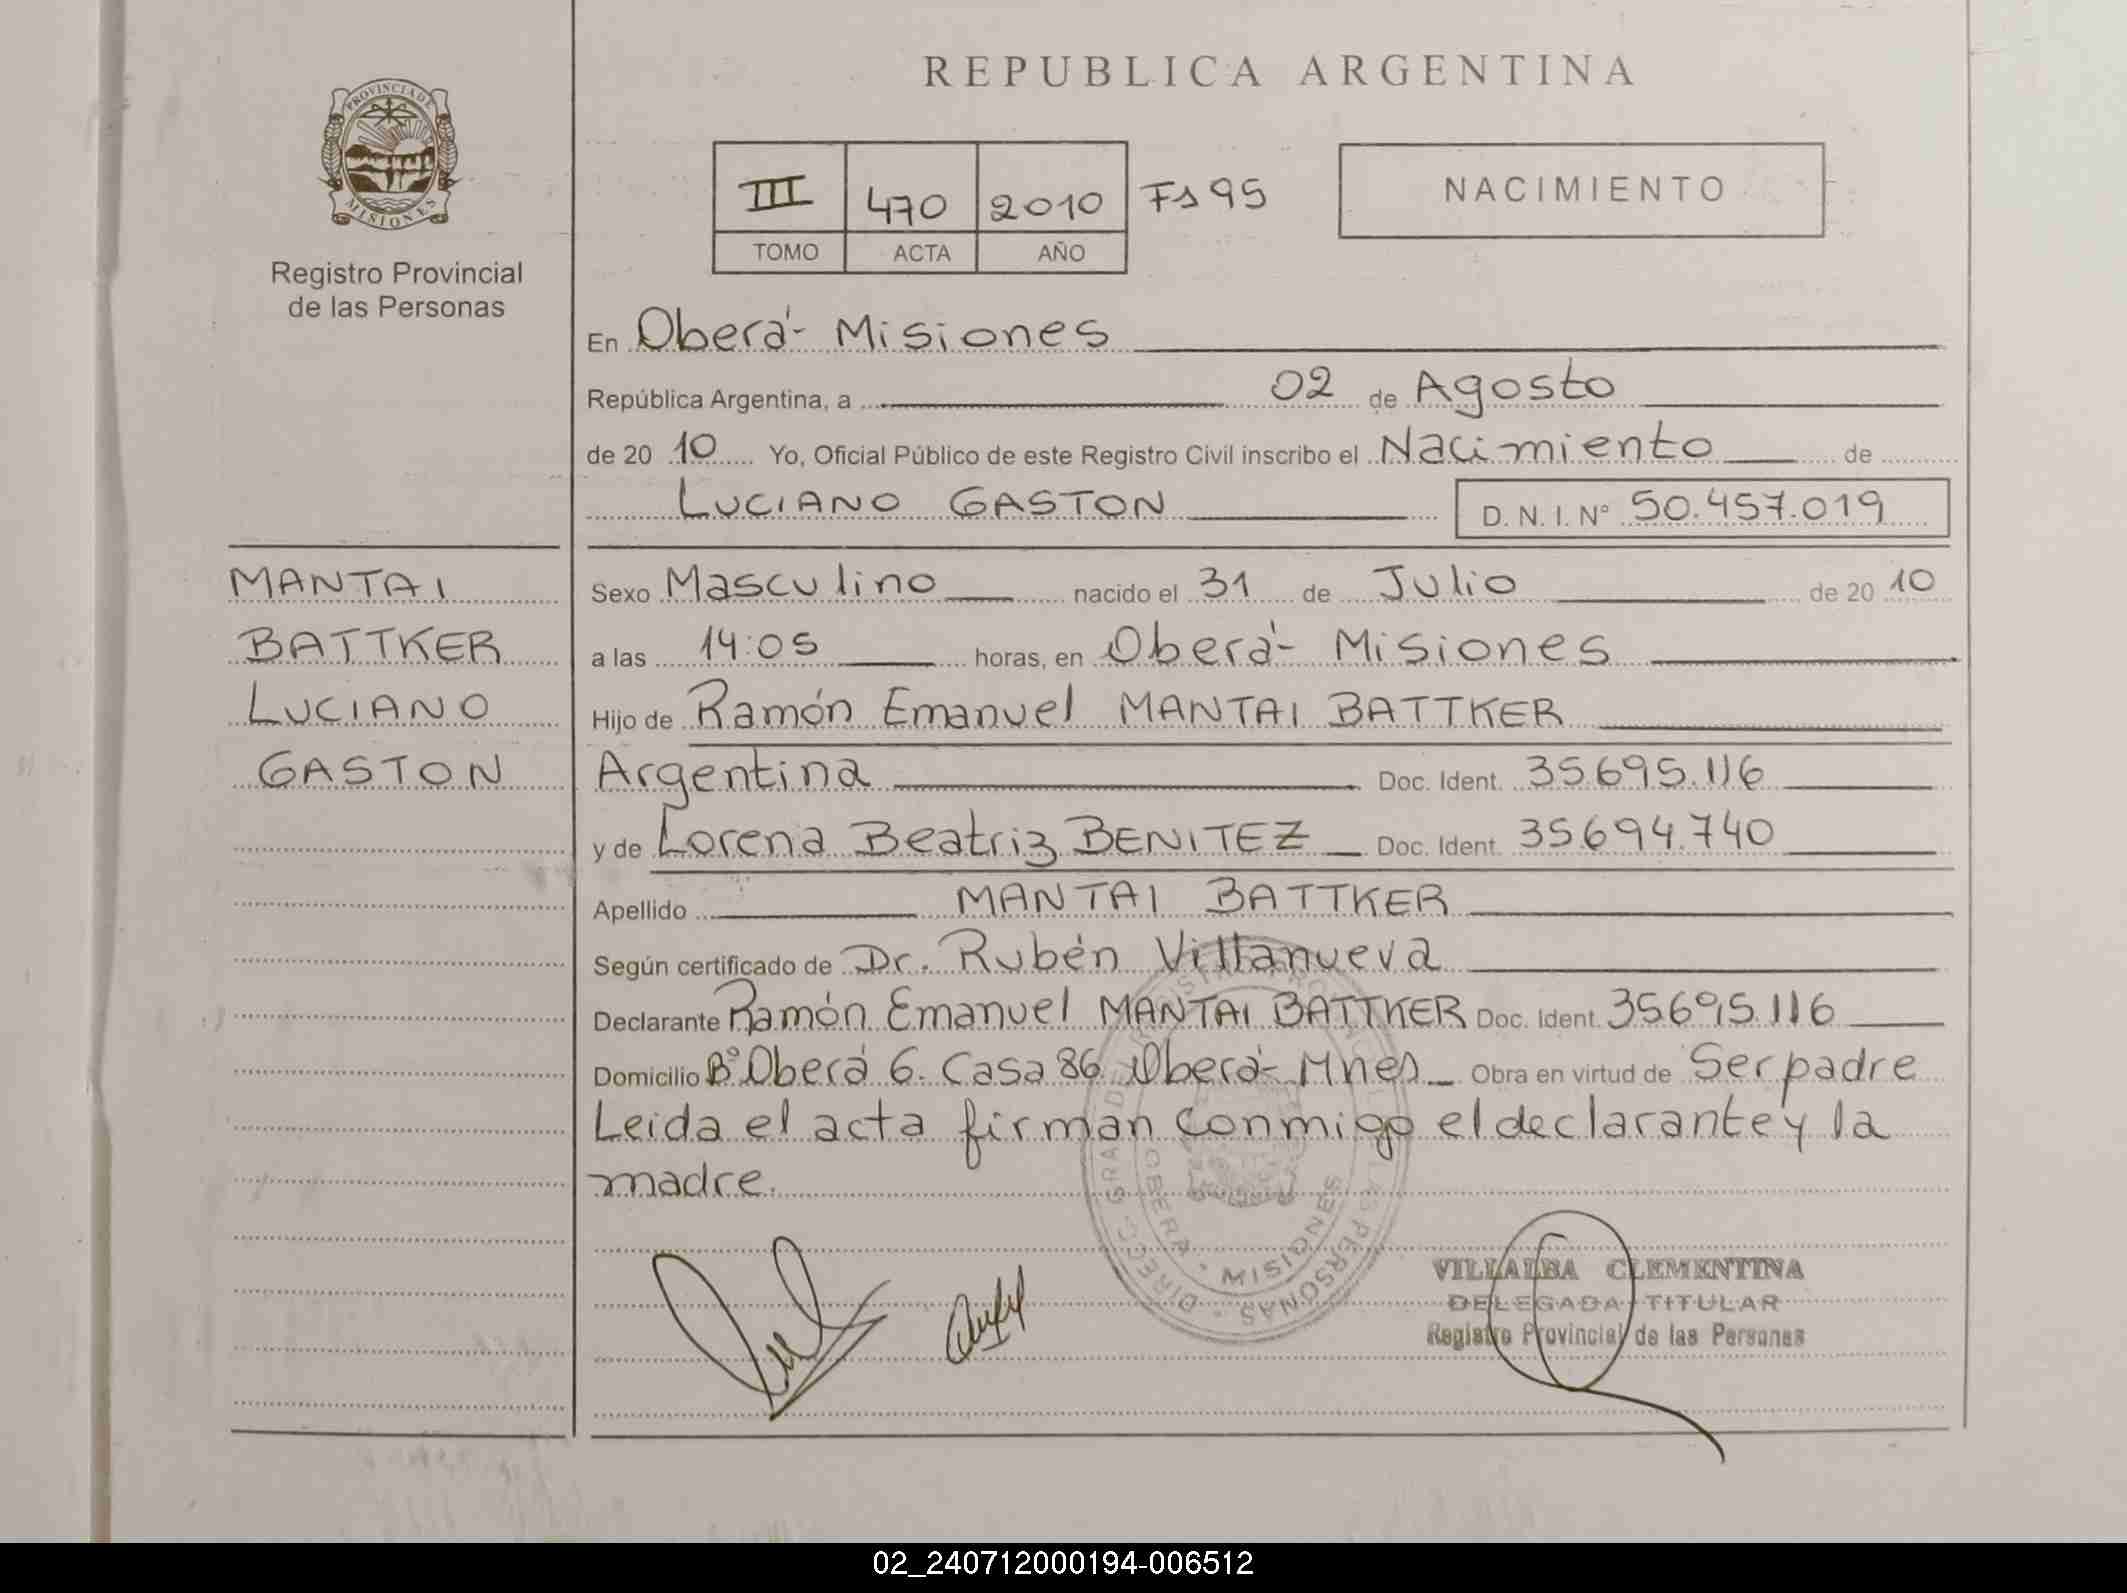 REPUBLICA ARGENTINA
PROVINCIA DE
MISIONES
Registro Provincial
de las Personas
III 470 2010 Fs 95
TOMO ACTA AÑO
NACIMIENTO
En Oberá - Misiones
República Argentina, a 02 de Agosto
de 20 10 Yo, Oficial Público de este Registro Civil inscribo el Nacimiento de
LUCIANO GASTON D. N. I. N° 50.457.019
MANTAI
BATTKER
LUCIANO
GASTON
Sexo Masculino nacido el 31 de Julio de 20 10
a las 14:05 horas, en Oberá - Misiones
Hijo de Ramón Emanuel MANTAI BATTKER
Argentina Doc. Ident. 35695.116
y de Lorena Beatriz BENITEZ Doc. Ident. 35694.740
Apellido MANTAI BATTKER
Según certificado de Dr. Rubén Villanueva
Declarante Ramón Emanuel MANTAI BATTKER Doc. Ident. 35695.116
Domicilio B° Oberá 6. Casa 86 Oberá - Mnes Obra en virtud de Ser padre
Leida el acta firman conmigo el declarante y la
madre.
OBERA • MISIONES
PERSONAS
VILLALBA CLEMENTINA
DELEGADA TITULAR
Registro Provincial de las Personas
02_240712000194-006512